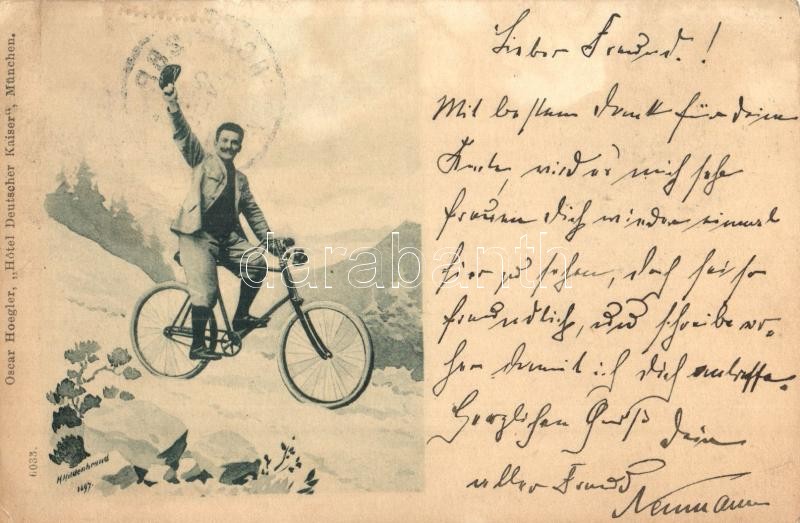 Oscar Hoegler, „Hôtel Deutscher Kaiser“, München.
6033.
darabanth
1897.
Lieber Freund.!
Mit bestem Dank für deine
Karte, wird es mich sehr
freuen dich wieder einmal
hier zu sehen, doch sei so
freundlich, und schreibe vo-
her damit ich dich antreffe.
Herzlichen Gruß
dein
alter Freund
Neumann